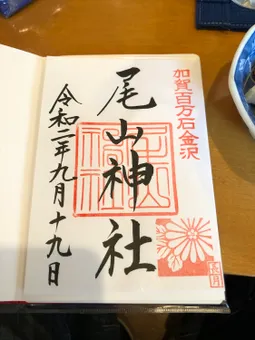 加賀百万石金沢
尾山神社
令和二年九月十九日